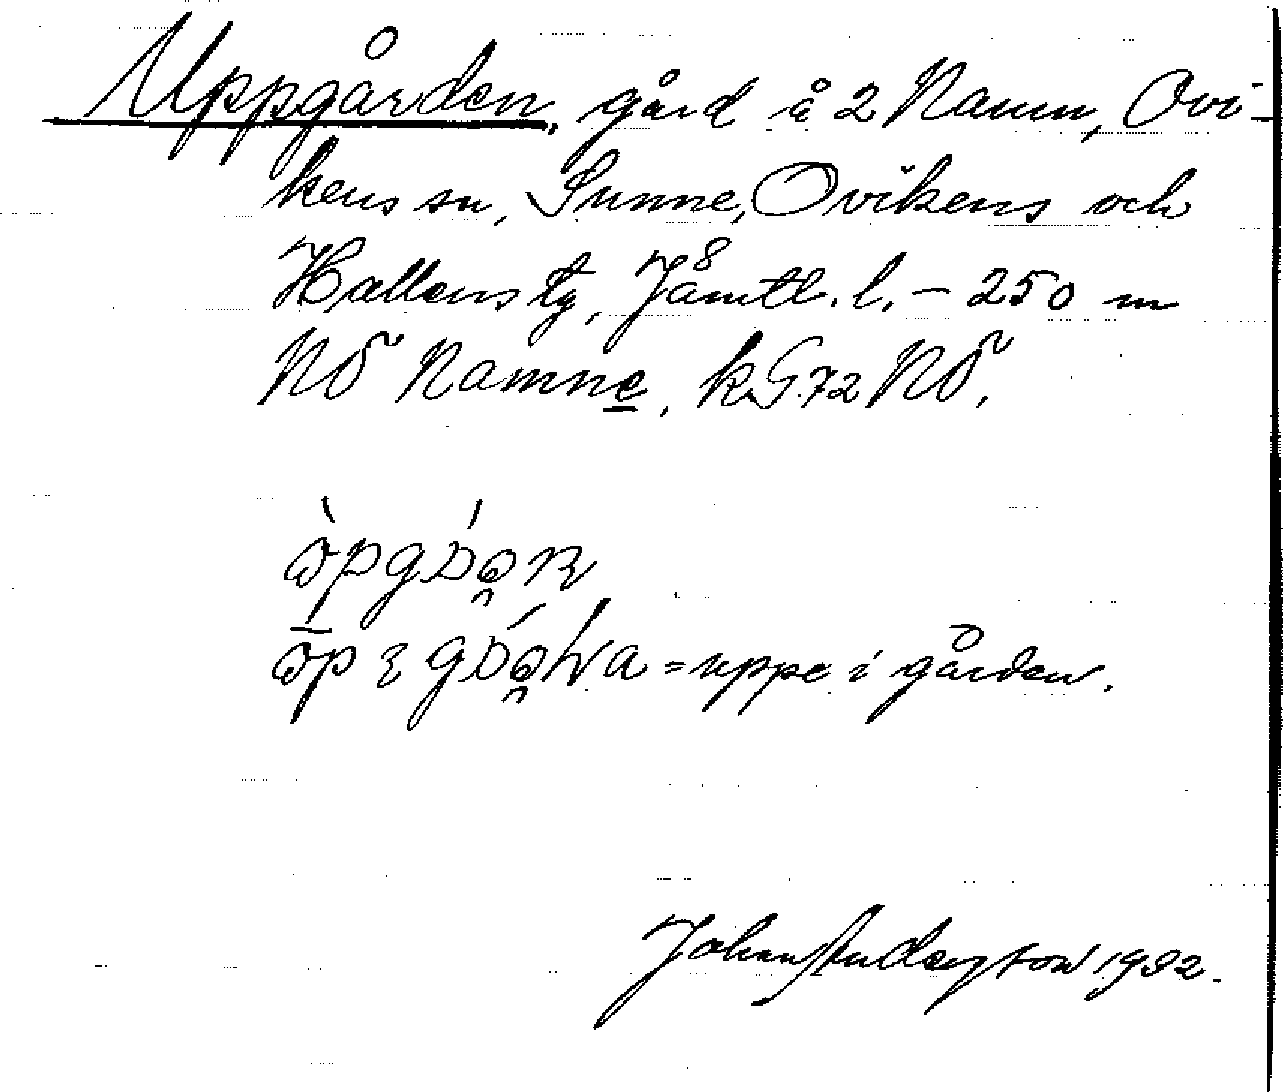 Uppgården, gård å 2 Namn, Ovi-
kens sn, Sunne, Ovikens och
Hallens tg, Jämtl. l. – 250 m
NÖ Namne, k. G. 72 NÖ.
= uppe i gården.
Johan Anderson 1932.